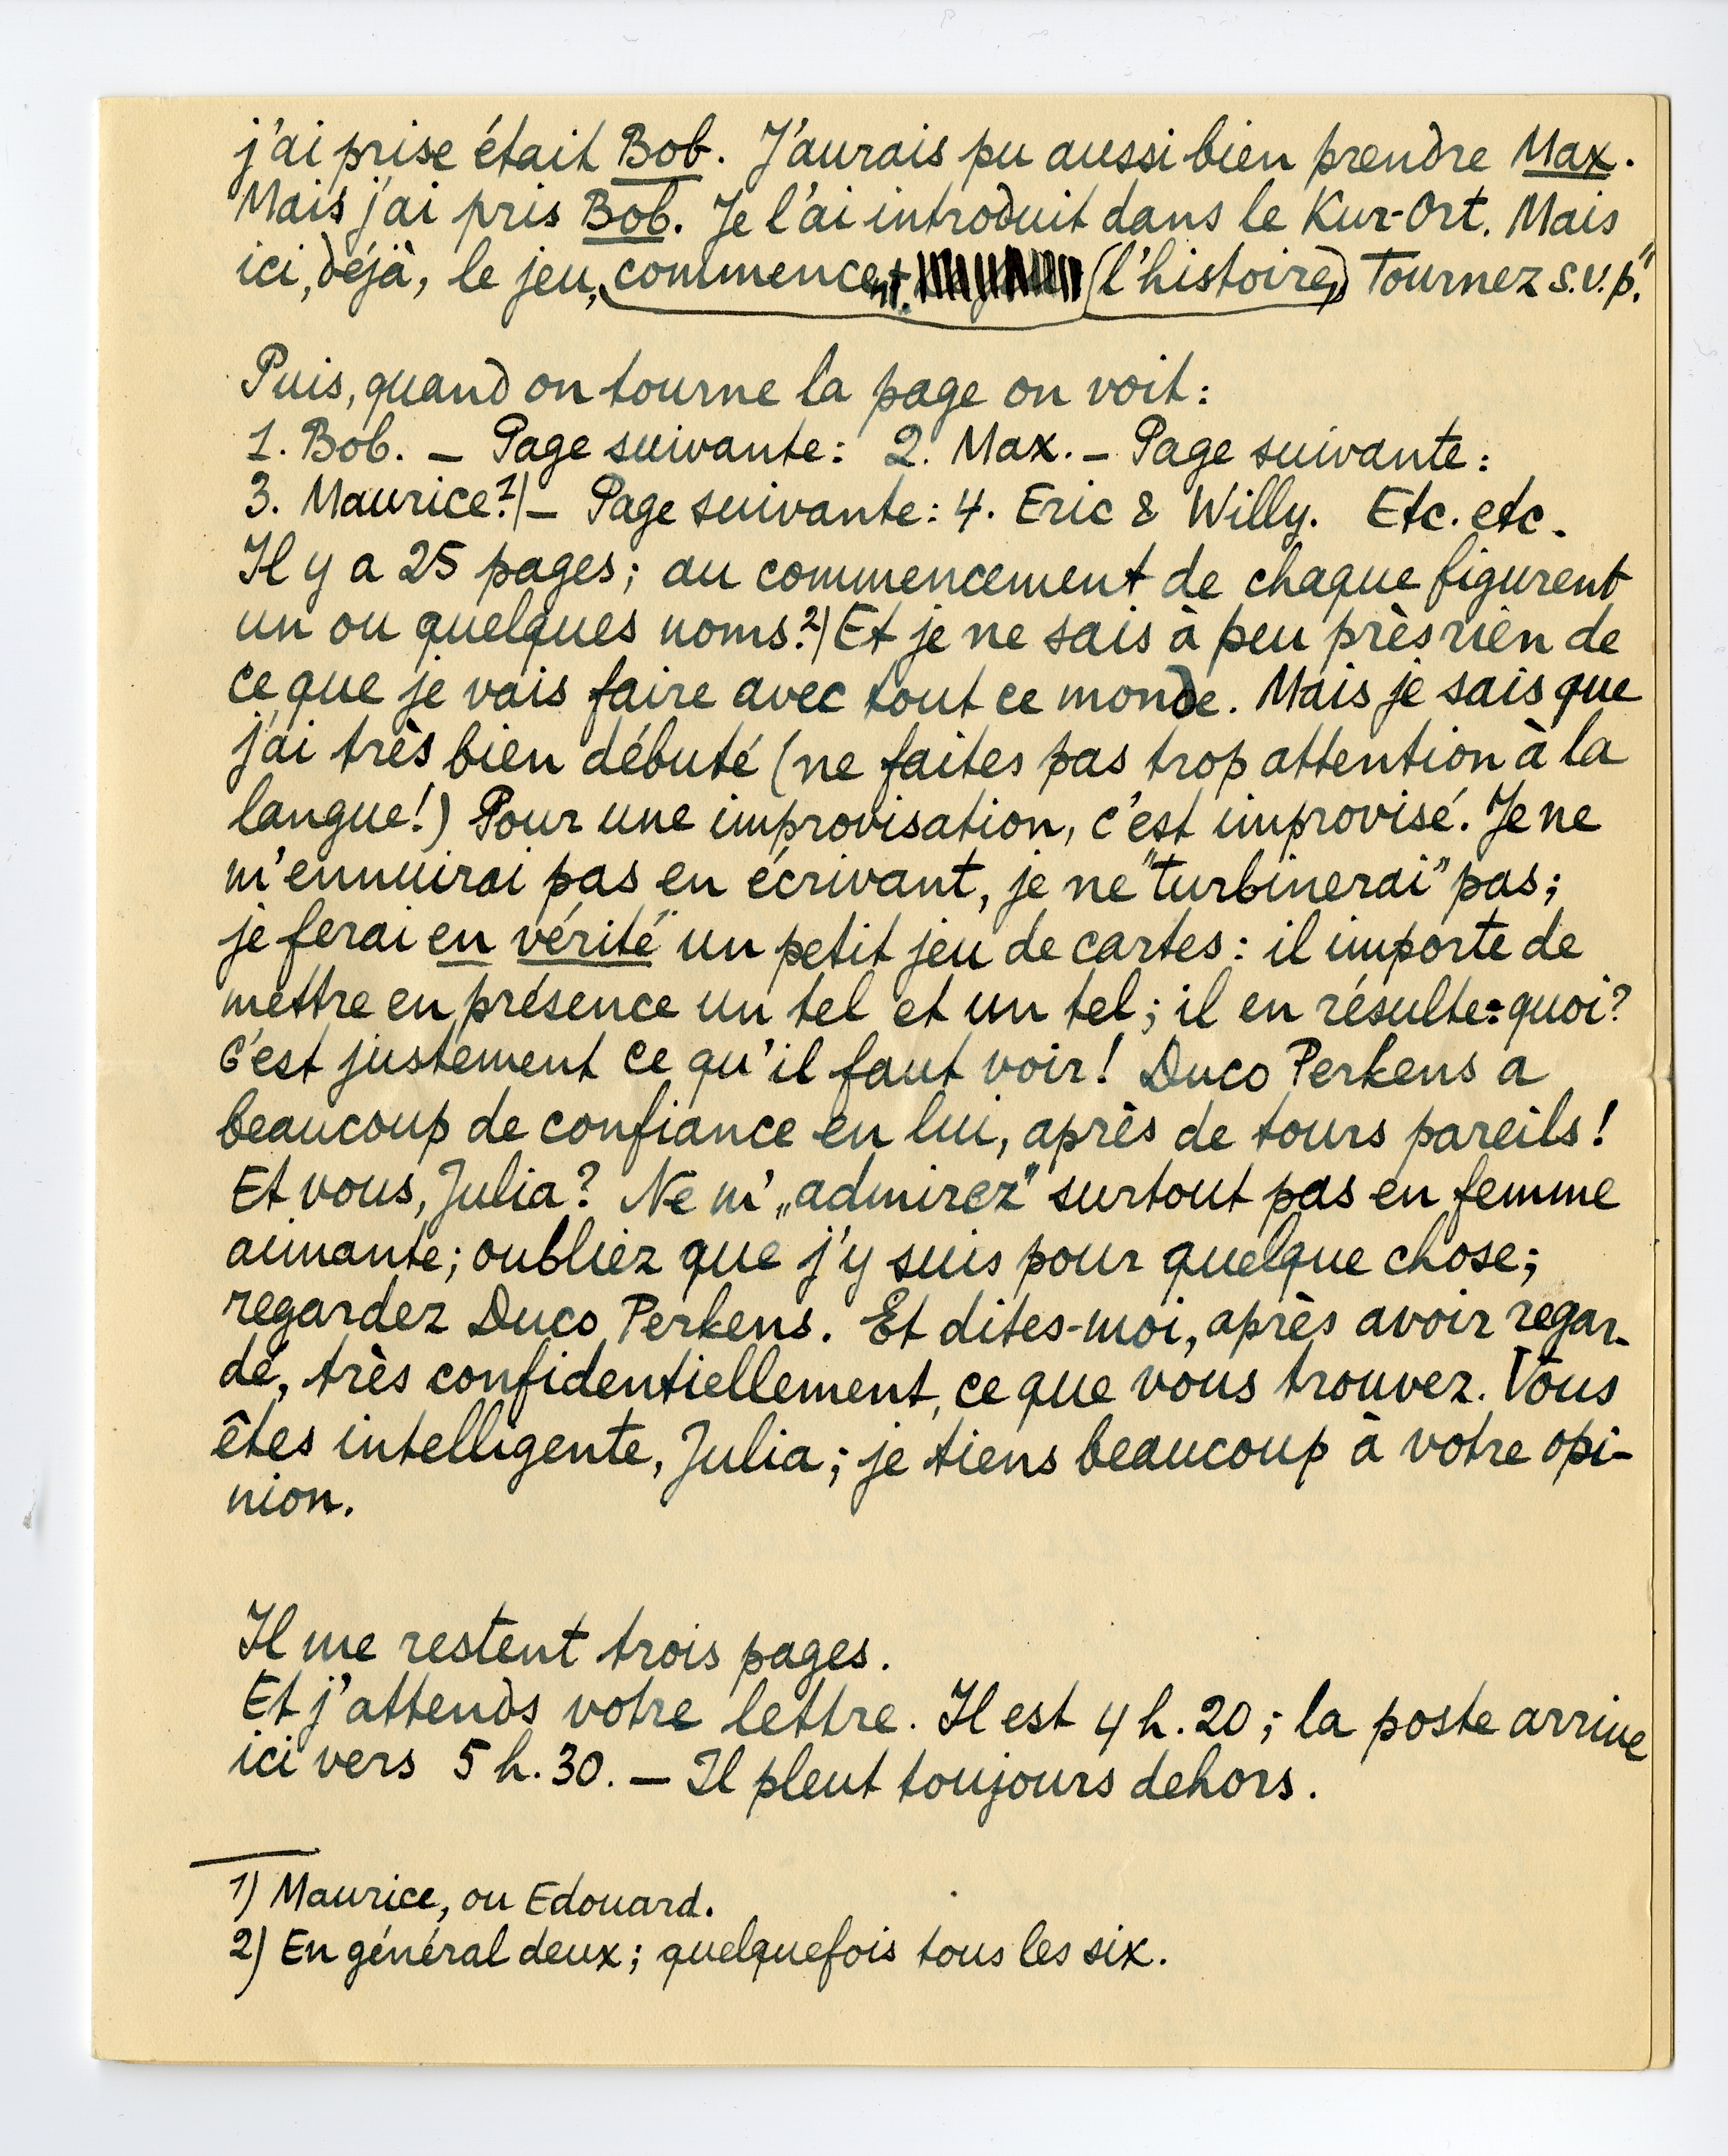 j'ai prise était Bob. J'aurais pu aussi bien prendre Max.
Mais j'ai pris Bob. Je l'ai introduit dans le Kur-Ort. Mais
ici, déjà, le jeu, commencent. (l'histoire,) Tournez s.v.p."
Puis, quand on tourne la page on voit:
1. Bob. — Page suivante: 2. Max. — Page suivante:
3. Maurice.1) — Page suivante: 4. Eric & Willy. Etc. etc.
Il y a 25 pages; au commencement de chaque figurent
un ou quelques noms.2) Et je ne sais à peu près rien de
ce que je vais faire avec tout ce monde. Mais je sais que
j'ai très bien débuté (ne faites pas trop attention à la
langue!) Pour une improvisation, c'est improvisé. Je ne
m'ennuirai pas en écrivant, je ne "turbinerai" pas;
je ferai en vérité un petit jeu de cartes: il importe de
mettre en présence un tel et un tel; il en résulte: quoi?
C'est justement ce qu'il faut voir! Duco Perkens a
beaucoup de confiance en lui, après de tours pareils!
Et vous, Julia? Ne m'„admirez" surtout pas en femme
aimante; oubliez que j'y suis pour quelque chose;
regardez Duco Perkens. Et dites-moi, après avoir regar-
dé, très confidentiellement, ce que vous trouvez. Vous
êtes intelligente, Julia; je tiens beaucoup à votre opi-
nion.
Il me restent trois pages.
Et j'attends votre lettre. Il est 4 h. 20; la poste arrive
ici vers 5 h. 30. — Il pleut toujours dehors.
1) Maurice, ou Edouard.
2) En général deux; quelquefois tous les six.